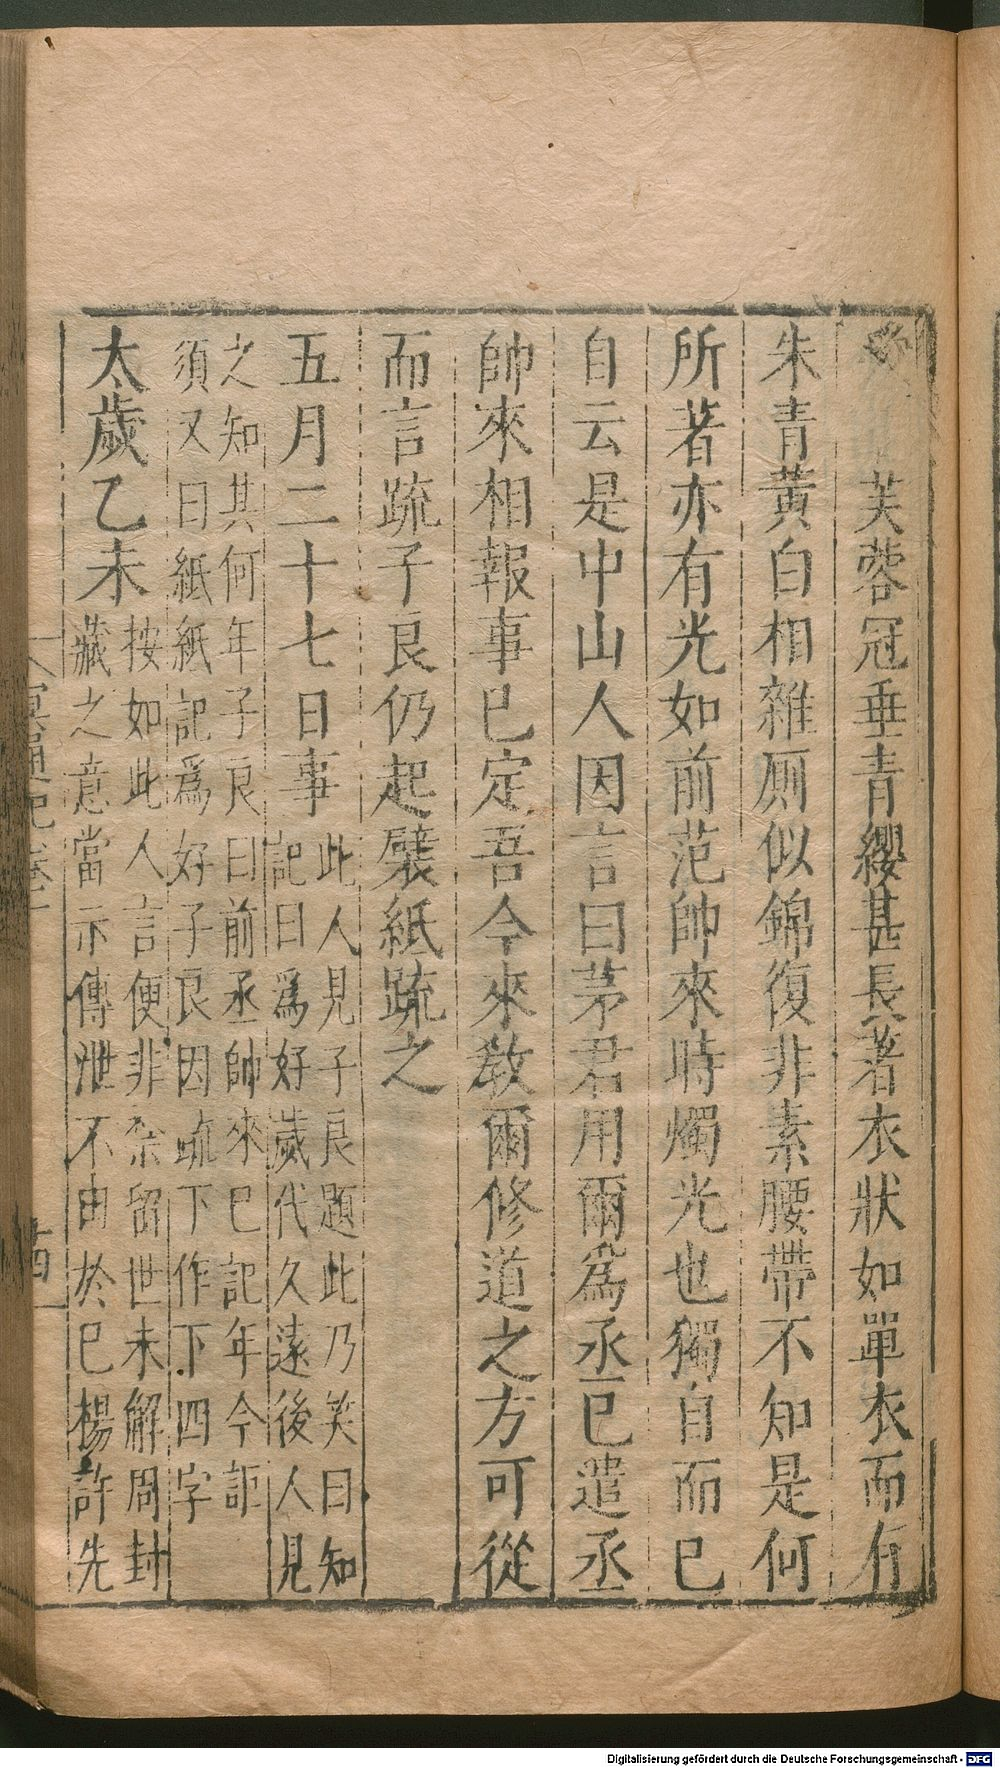 芙蓉冠垂青纓甚長著衣狀如單衣而有
朱青黃白相雜厠似錦復非素腰帶不知是何
所著亦有光如前范帥來時燭光也獨自而巳
自云是中山人因言曰茅君用爾爲丞巳遣丞
帥來相報事巳定吾今來教爾修道之方可從
而言疏子良仍起襞紙疏之
五月二十七日事此人見子良題此乃笑曰知
記日爲好歲代久遠後人見
之知其何年子良曰前丞帥來巳記年今詎
須又曰紙紙記爲好子良因疏下作下四字
太歲乙未按如此人言便非祭留世未解周封
藏之意當示傳泄不由於巳楊許先
冥通記卷一
Digitalisierung gefördert durch die Deutsche Forschungsgemeinschaft - DFG